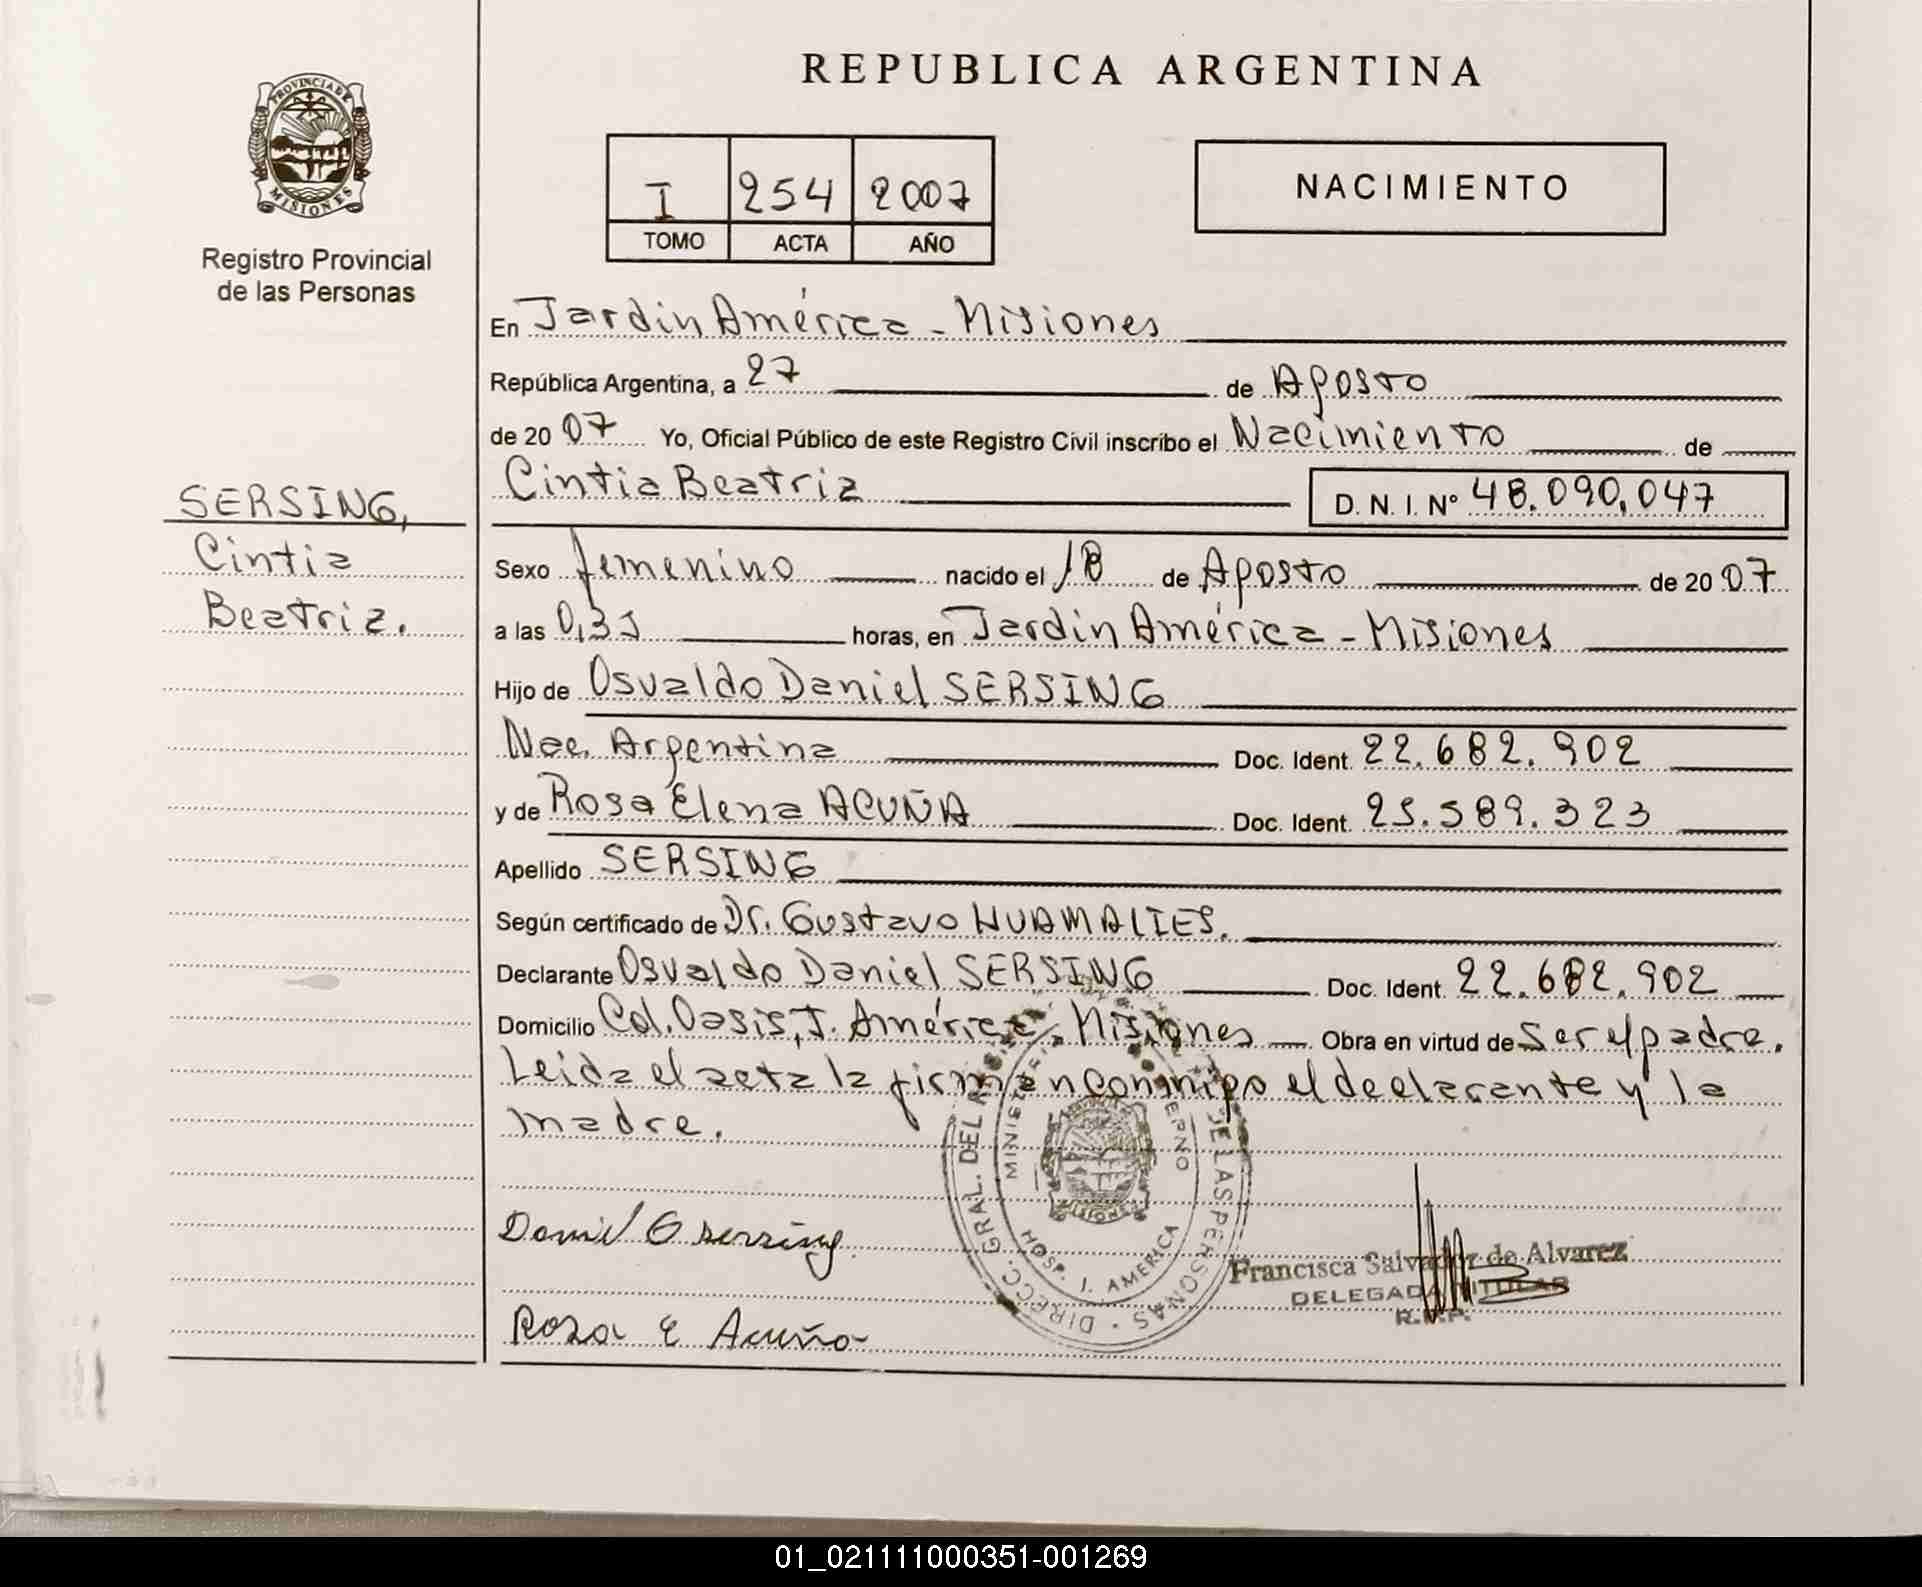 REPUBLICA ARGENTINA
PROVINCIA DE
MISIONES
Registro Provincial
de las Personas
I 254 2007
TOMO ACTA AÑO
NACIMIENTO
SERSING,
Cintia
Beatriz.
En Jardin América - Misiones
República Argentina, a 27 de Agosto
de 20 07 Yo, Oficial Público de este Registro Civil inscribo el Nacimiento de
Cintia Beatriz D. N. I. Nº 48.090.047
Sexo femenino nacido el 18 de Agosto de 20 07
a las 0,35 horas, en Jardin América - Misiones
Hijo de Osvaldo Daniel SERSING
Nac. Argentina Doc. Ident. 22.682.902
y de Rosa Elena ACUÑA Doc. Ident. 25.589.323
Apellido SERSING
Según certificado de Dr. Gustavo HUAMALIES.
Declarante Osvaldo Daniel SERSING Doc. Ident. 22.682.902
Domicilio Col. Oasis, J. América, Misiones Obra en virtud de Ser el padre.
Leida el acta la firman conmigo el declarante y la
madre.
DIRECC. GRAL. DEL DE LAS PERSONAS
HOSP. J. AMERICA
MISIONES
Daniel O sersing
Francisca Salvador de Alvarez
DELEGADA TITULAR
R.P.P.
Rosa E Acuña
01_021111000351-001269